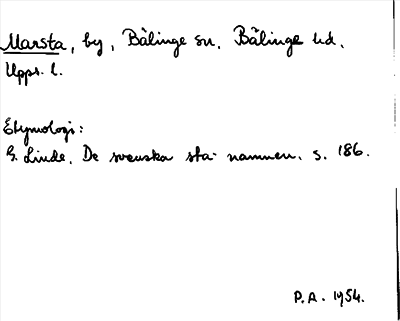 Marsta, by, Bälinge sn. Bälinge hd.
Upps. l.
Etymologi:
G. Linde. De svenska sta-namnen. s. 186.
P.A. 1954.